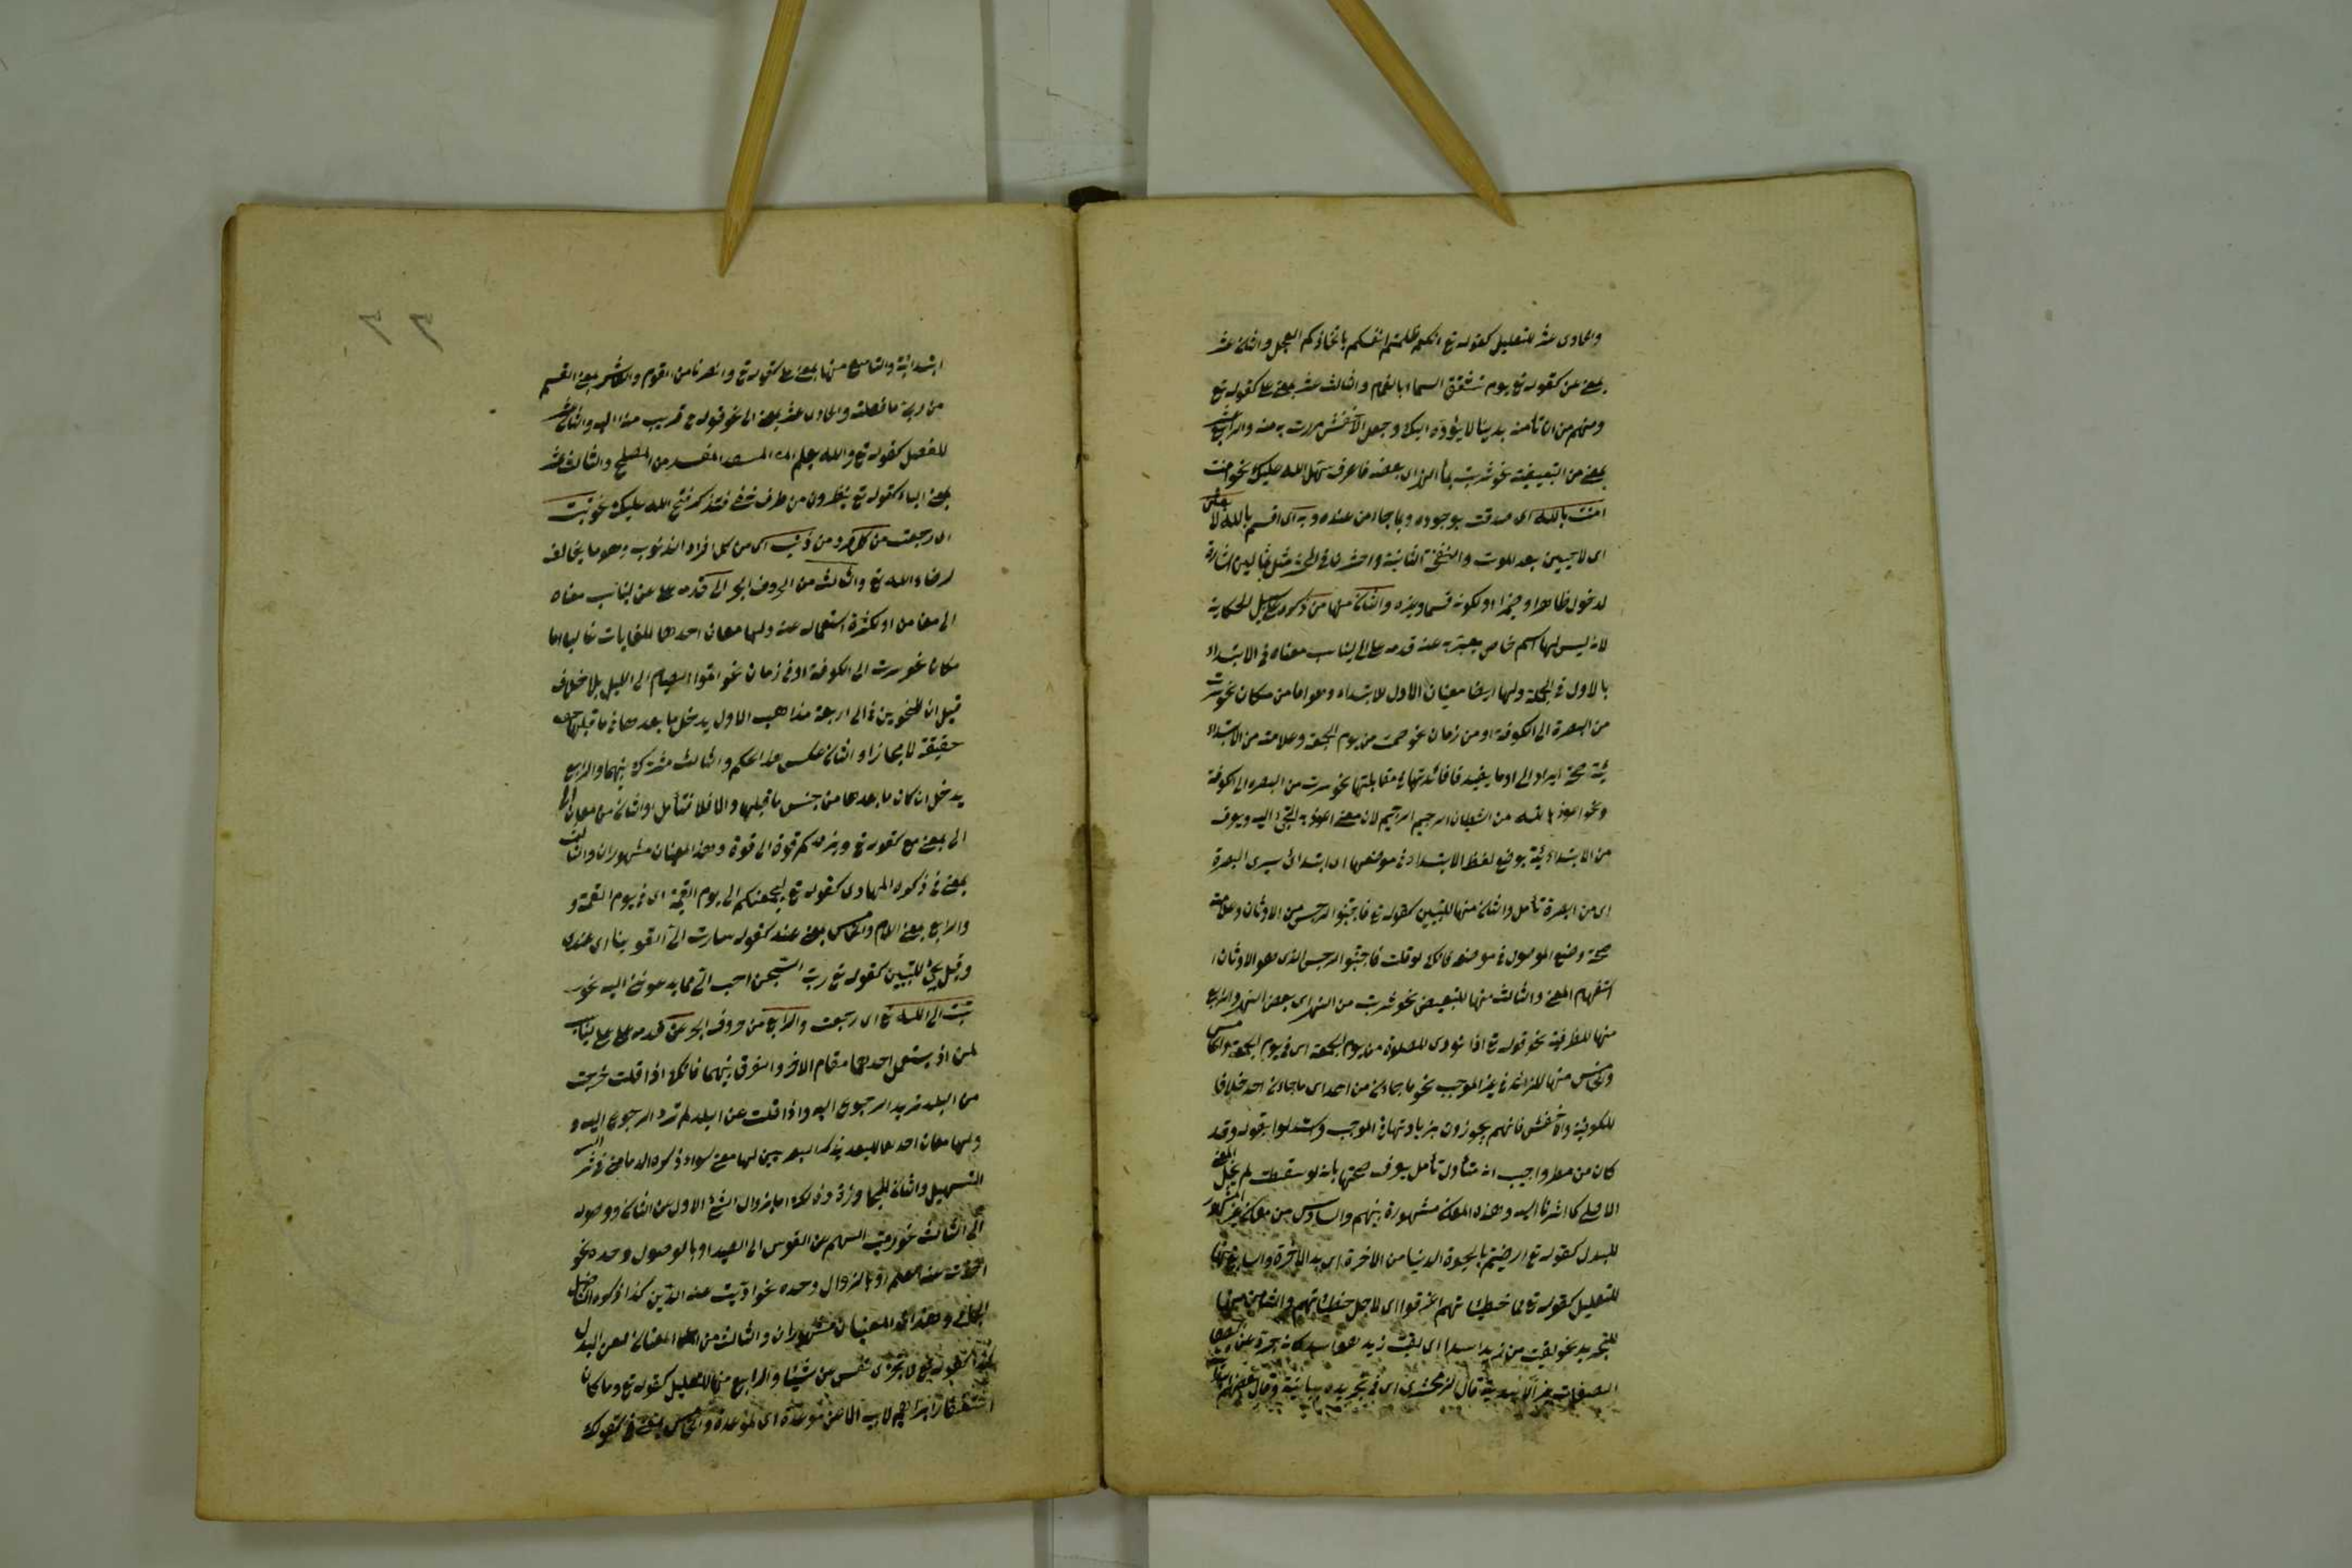 والحادى عشر للتعليل كقوله تع انكم ظلمتم انفسكم باتخاذكم العجل والثانى عشر
بمعنى عن كقوله تع يوم تشقق السماء بالغمام والثالث عشر بمعنى على كقوله تع
ومنهم من ان تأمنه بدينار لا يؤده اليك وجعل الاخفش مررت به منه والرابع عشر
بمعنى من التبعيضية نحو شربت بماء اى بعضه فاعرف سهل الله عليك نحو امنت
امنت بالله اى صدقت بوجوده وبما جاء من عنده وبه اى اقسم بالله لابعثن
اى لاحيين بعد الموت والنفخة الثانية
لدخول ظاهرا او مضمرا او لكونه قسما وغيره والثانى منها من ذكره على سبيل الحكاية
لانه ليس لها اسم خاص يعبر به عنه قدمه على الى ليناسب معناه فى الابتداء
بالاول فى الجملة ولها ايضا معنيان الاول للابتداء وهو اما من مكان نحو سرت
من البصرة الى الكوفة او من زمان نحو صمت من يوم الجمعة وعلامة من الابتدا
ئية صحة ايراد الى او ما يفيد فائدتها فى مقابلتها نحو سرت من البصرة الى الكوفة
ونحو اعوذ بالله من الشيطان الرجيم لان معنى اعوذ به التجئ اليه ويعرف
من الابتدائية بوضع لفظ الابتداء فى موضعها اى ابتدائى سيرى البصرة
اى من البصرة تأمل والثانى منها للتبيين كقوله تع فاجتنبوا الرجس من الاوثان وعلامته
صحة وضع الموصول فى موضعه فانك لو قلت فاجتنبوا الرجس الذى هو الاوثان
استقام المعنى والثالث منها للتبعيض نحو شربت من النهر اى بعض النهر والرابع
منها للظرفية نحو قوله تع اذا نودى للصلوة من يوم الجمعة اى فى يوم الجمعة والخامس
والخامس منها للزائدة فى غير الموجب نحو ما جاءنى من احد اى ما جاءنى احد خلافا
للكوفية والاخفش فانهم يجوزون زيادتها فى الموجب واستدلوا بقوله وقد
كان من مطر واجيب انه متأول تأمل يعرف صحتها بانه لو سقطت لم يخل المعنى
الاصلى كما اشرنا اليه وهذه المعانى مشهورة بينهم والسادس من معانى غير المشهور
للبدل كقوله تع ارضيتم بالحيوة الدنيا من الاخرة اى بدل الاخرة والسابع منها
للتعليل كقوله تع مما خطيئاتهم اغرقوا اى لاجل خطيئاتهم والثامن منها
للتجريد نحو لقيت من زيد اسدا اى لقيت زيد هو اسد كانه جرد عن
الصفات غير الاسدية قال الزمخشرى اى فى تجريده بيانية وقال بعضهم
ابتدائية والتاسع منها بمعنى على كقوله تع ونصرناه من القوم والعاشر بمعنى القسم
من ربى ما فعلت والحادى عشر بمعنى الى نحو قوله قريب منه اى اليه والثانى عشر
للفصل كقوله تع والله يعلم المفسد من المصلح والثالث عشر
بمعنى الباء كقوله تع ينظرون من طرف خفى فتذكر فتح الله عليك نحو تبت
اى رجعت من كل فرد من ذنب اى من كل افراد الذنوب وهو ما يخالف
لرضاء الله تع والثالث من الحروف الجر الى قدمه على عن ليناسب معناه
الى معنا من او لكثرة استعماله عنه ولها معان احدها للغايات غالبا اما
مكان نحو سرت الى الكوفة او فى زمان نحو اتموا الصيام الى الليل بلا خلاف
قيل ان للنحويين فى الى اربعة مذاهب الاول يدخل ما بعدها فى ما قبلها
حقيقة لا مجازا والثانى عكس هذا الحكم والثالث مشترك بينهما والرابع
يدخل ان كان ما بعدها من جنس ما قبلها والا فلا فتأمل والثانى من معان
الى بمعنى مع كقوله تع ويزدكم قوة الى قوة وهذا المعنيان مشهوران والثالث
بمعنى فى ذكره المهادى كقوله تع ليجمعنكم الى يوم القيمة اى فى يوم القيمة و
والرابع بمعنى اللام والخامس بمعنى عند كقوله سارت الى القوينا اى عندى
وقيل يجئ للتبيين كقوله تع رب السجن احب الى مما يدعوننى اليه نحو
تبت الى الله تع اى رجعت والرابع من حروف الجر عن قدمه على على ليناسب
لمن اذ يستعمل احدهما مقام الاخر والفرق بينهما فانك اذا قلت خرجت
من البلد تريد الرجوع اليه واذا قلت عن البلد لم ترد الرجوع اليه و
ولها معان احدها للبعد
التسهيل والثانى للمجاوزة وذلك اما بزوال الشئ الاول عن الثانى ووصوله
الى الثالث نحو رميت السهم عن القوس الى الصيد او بالوصول وحده نحو
اخذت عنه العلم او بالزوال وحده نحو اديت عنه الدين كذا ذكره الفاضل
الجامى وهذان المعنيان مشهوران والثالث من المعانى لعن البدل
كقوله تع لا تجزى نفس عن نفس شيئا والرابع منها للتعليل كقوله تع وما كان
استغفار ابراهيم لابيه الا عن موعدة اى لموعدة والخامس بمعنى فى كقولك